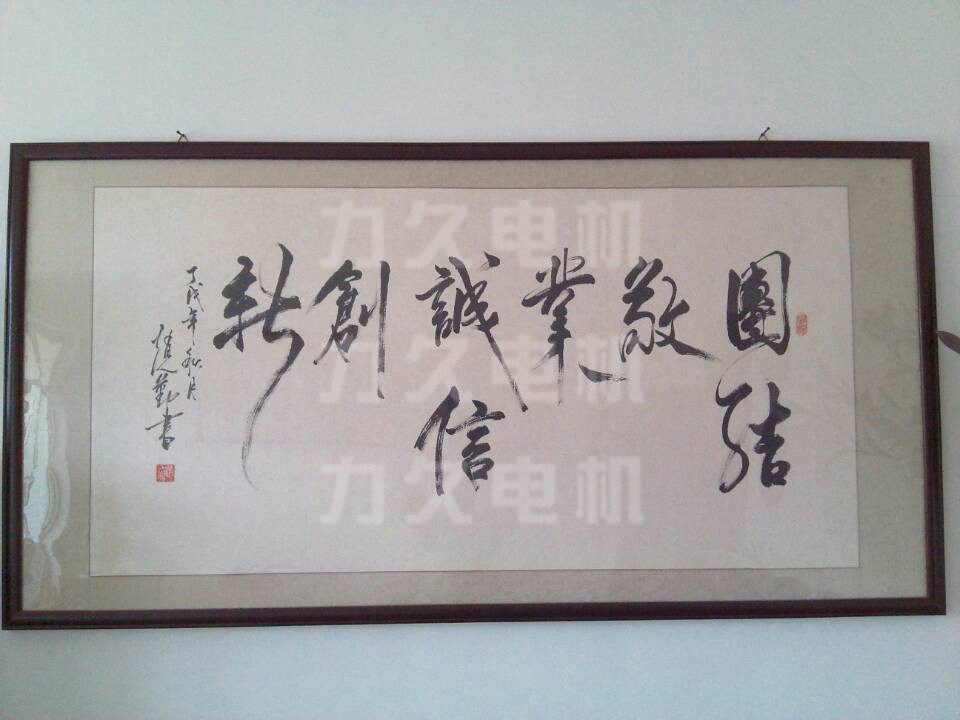 團結
敬
業
誠信
創
新
戌年秋月
勤書
力久电机
力久电机
力久电机